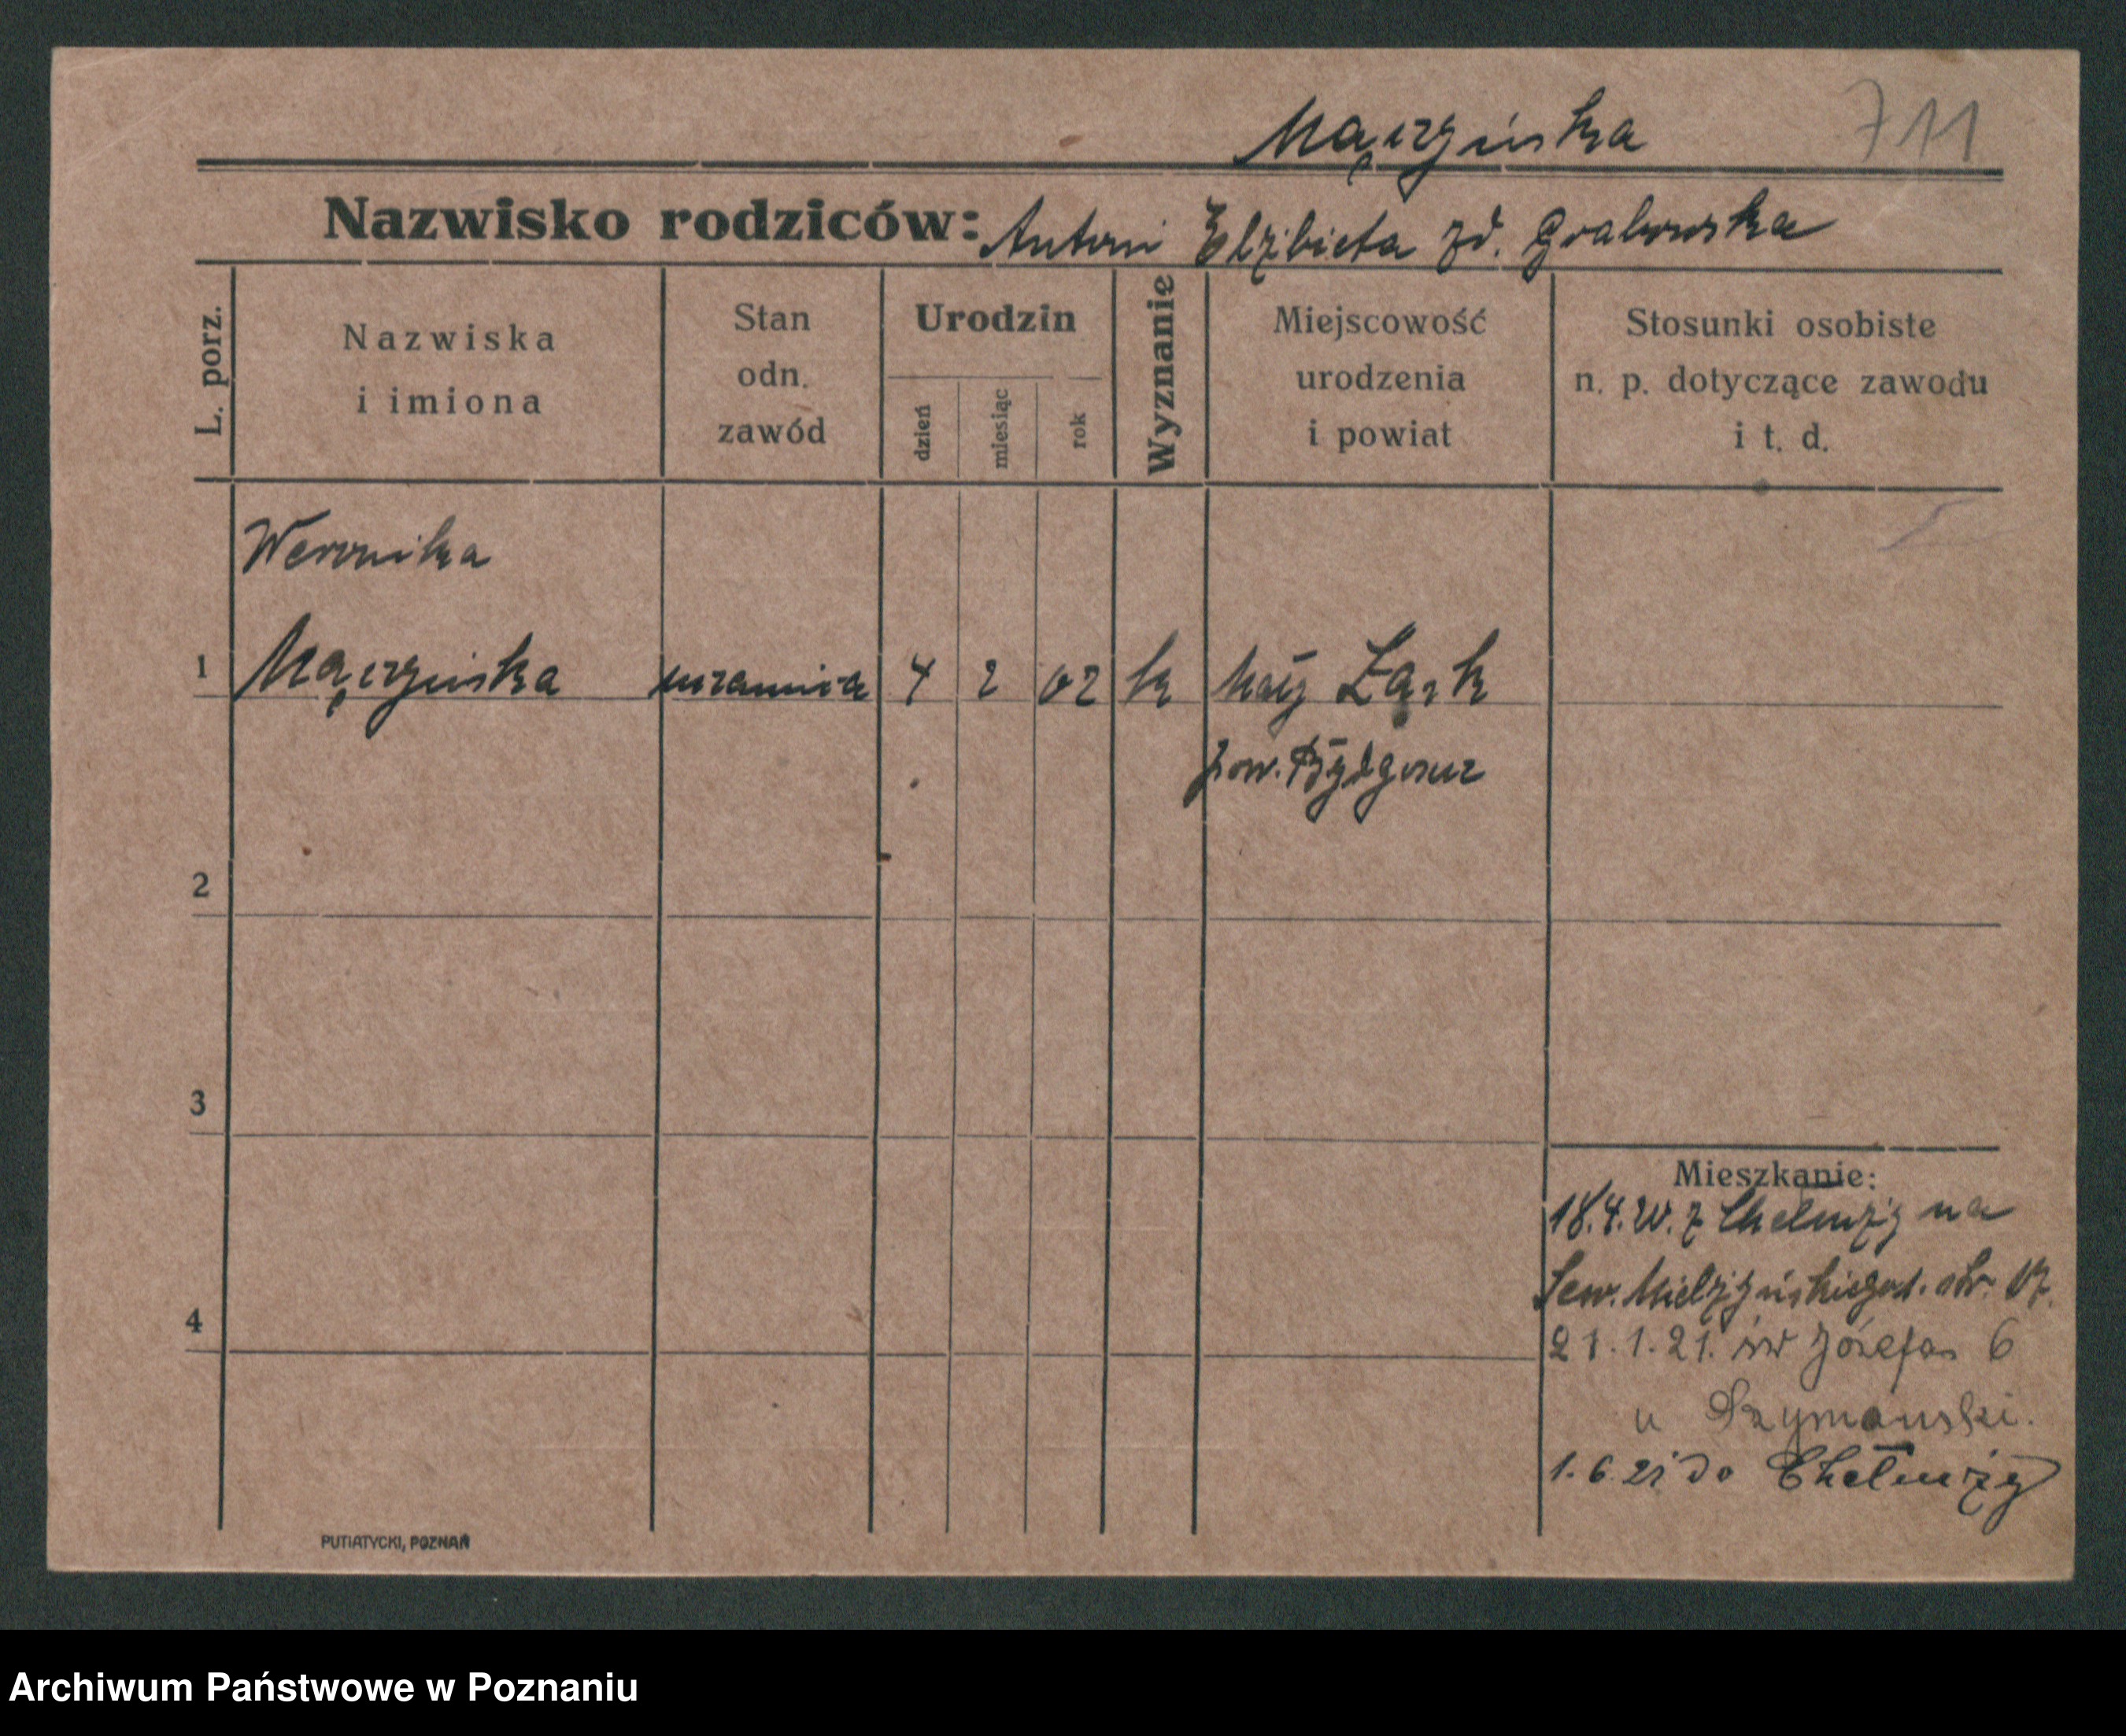 Mączyńska 711
Nazwisko rodziców: Antoni Elżbieta zd. Grabowska
L. porz.
Nazwiska
i imiona
Stan
odn.
zawód
Urodzin
dzień
miesiąc
rok
Wyznanie
Miejscowość
urodzenia
i powiat
Stosunki osobiste
n. p. dotyczące zawodu
i t. d.
Weronika
1 Mączyńska uczennica 4 2 02 k Mały Ląsk
pow. Bydgoszcz
2
3
4
Mieszkanie:
18.4.20. z Chełmży na
Sew. Mielżyńskiego
21.1.21. św Józefa 6
u Szymański.
1.6.21 do Chełmży
PUTIATYCKI, POZNAŃ
Archiwum Państwowe w Poznaniu